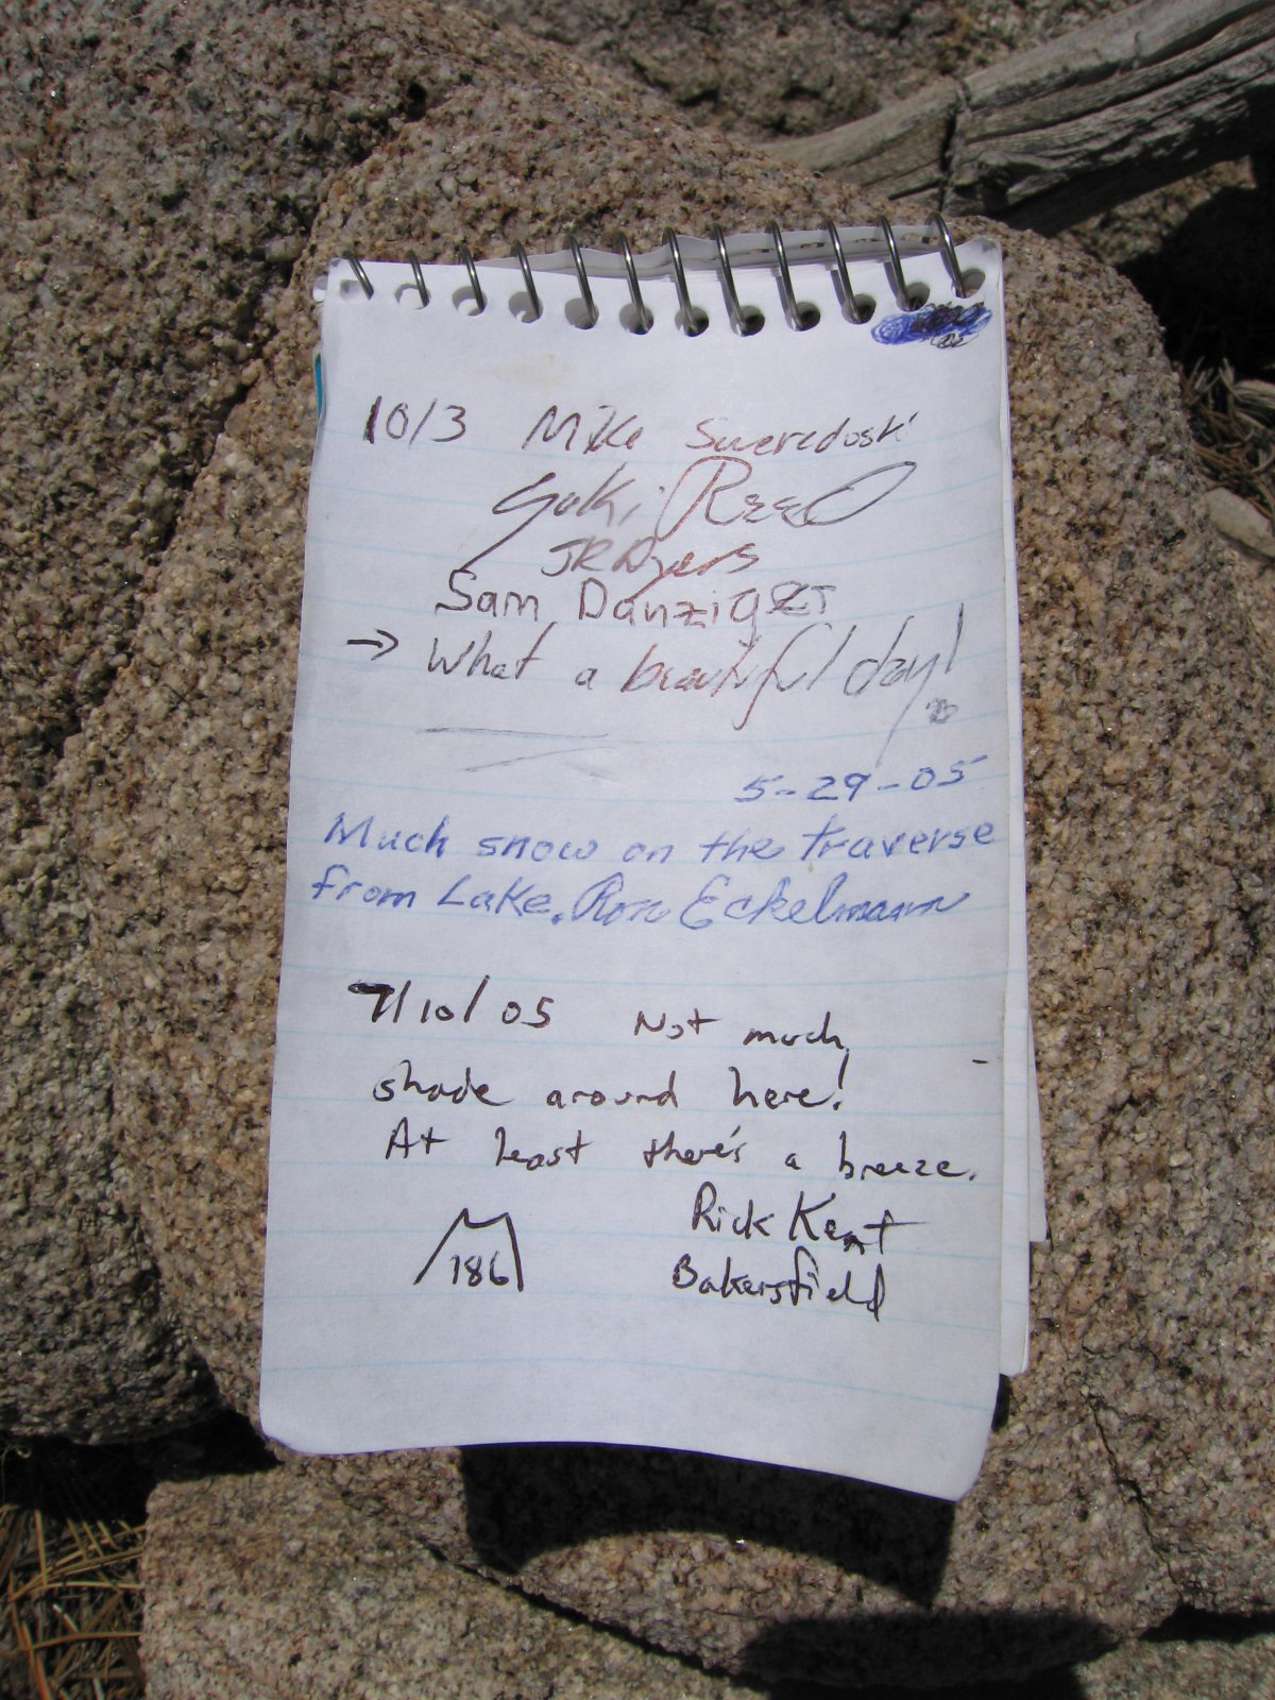 10/3 Mike Swercdoski
Yuki Reed
JR Dyers
Sam Danziger
→ What a beautiful day!
5-29-05
Much snow on the traverse
from Lake. Ron Eckelmann
7/10/05 Not much
shade around here!
At least there's a breeze.
Rick Kent
186 Bakersfield